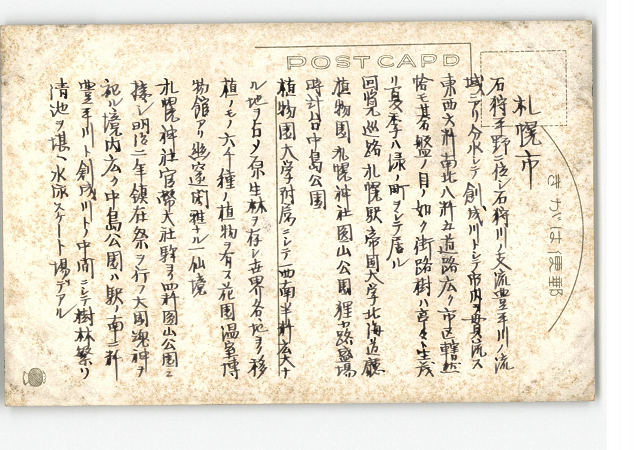 POST CARD
郵便はがき
札幌市
石狩平野ニ位シ石狩川ノ支流豊平川ノ流
域ニアリ分水シテ創成川トシテ市内ヲ貫流ス
東西六粁南北八粁五道路広ク市区轄然
恰モ碁盤ノ目ノ如ク街路樹ハ亭々ト生茂
リ夏季ハ緑ノ町ヲシテ居ル
回覧巡路 札幌駅 帝国大学 北海道廳
植物園 札幌神社 圓山公園 狸小路盛場
時計台 中島公園
植物園 大学附属ニシテ西南半粁広大ナ
ル地ヲ占メ原生林ヲ存シ世界各地ヨリ移
植ノモノ六千種ノ植物ヲ有ス花園温室博
物館アリ幽邃閑雅ナル仙境
札幌神社 官幣大社 駅ヨリ四粁圓山公園ニ
接シ明治二年鎮在祭ヲ行ノ大国魂神ヲ
祀ル境内広ク 中島公園ハ駅ノ南二粁
豊平川ト創成川トノ中間ニシテ樹林繁リ
清池ヲ堪ヘ水泳スケート場デアル